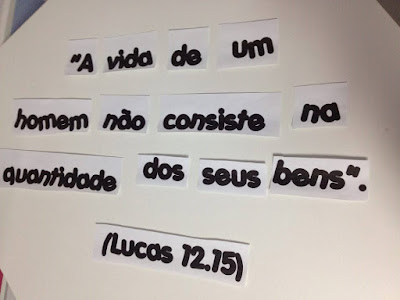 "A vida de um
homem não consiste na
quantidade dos seus bens".
(Lucas 12.15)